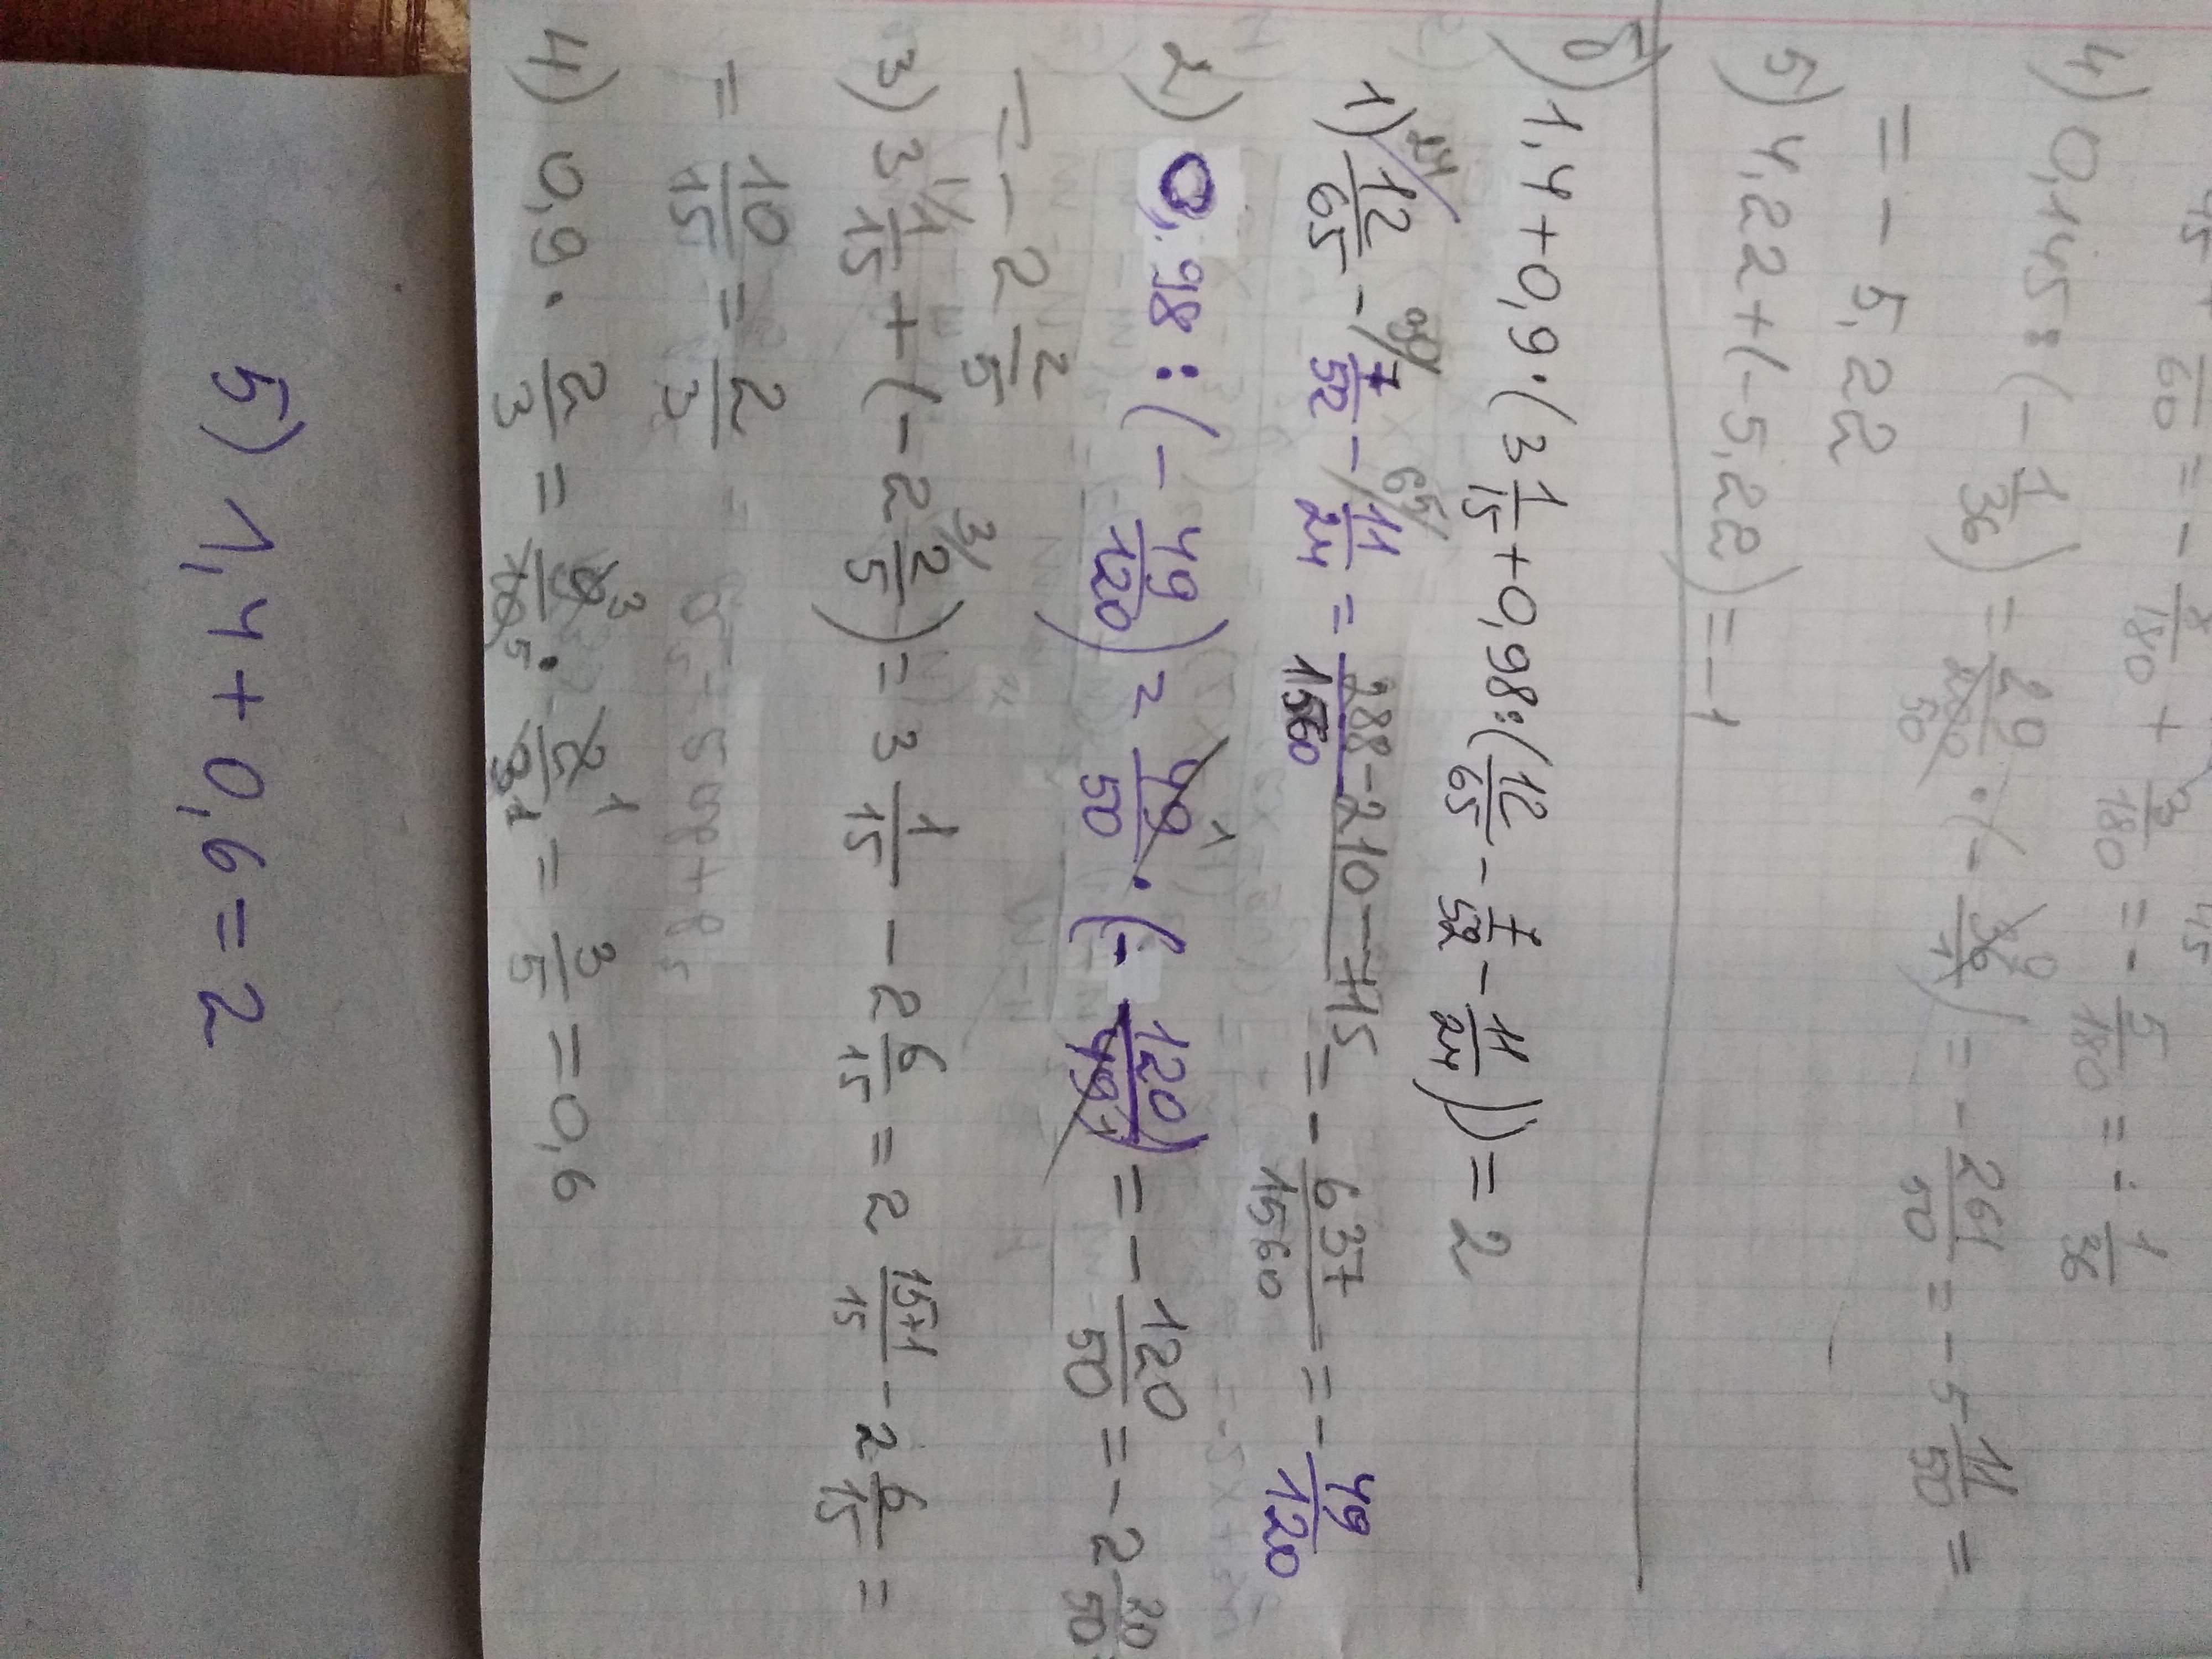 45 + /60 = - 8/180 + 3/180 = - 5/180 = - 1/36
4) 0,145 : (- 1/36) = 29/200 · (- 36/1) = - 261/50 = -5 11/50 =
= - 5,22
5) 4,22 + (-5,22) = -1
б) 1,4 + 0,9 · (3 1/15 + 0,98 : (12/65 - 7/52 - 11/24)) = 2
1) 24/ 12/65 - 30/ 7/52 - 65/ 11/24 = 288-210-715/1560 = - 637/1560 = - 49/120
2) 0,98 : (- 49/120) = 49/50 · (- 120/49) = - 120/50 = -2 20/50
= - 2 2/5
3) 3 1/15 + (-2 2/5) = 3 1/15 - 2 6/15 = 2 15+1/15 - 2 6/15 =
= 10/15 = 2/3
4) 0,9 · 2/3 = 9/10 · 2/3 = 3/5 = 0,6
5) 1,4 + 0,6 = 2